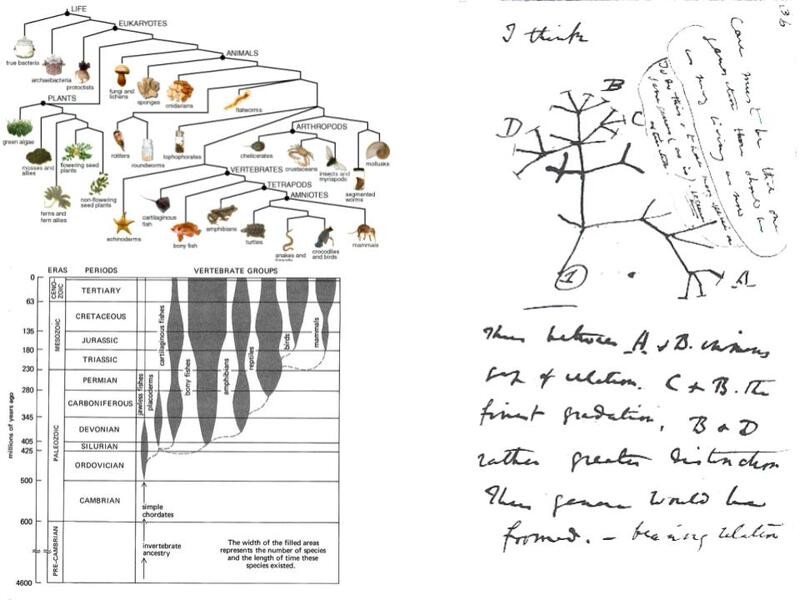 LIFE
EUKARYOTES
true bacteria
archaebacteria
protoctists
ANIMALS
fungi and
lichens
sponges
cnidarians
flatworms
PLANTS
green algae
mosses and
allies
flowering seed
plants
ferns and
fern allies
non-flowering
seed plants
rotifers
roundworms
lophophorates
ARTHROPODS
chelicerates
crustaceans
insects and
myriapods
segmented
worms
mollusks
VERTEBRATES
TETRAPODS
AMNIOTES
echinoderms
cartilaginous
fish
bony fish
amphibians
turtles
snakes and
crocodiles
and birds
mammals
ERAS PERIODS VERTEBRATE GROUPS
millions of years ago
0
63
135
180
230
280
345
405
425
500
600
4600
CENO-
ZOIC
MESOZOIC
PALEOZOIC
PRE-CAMBRIAN
TERTIARY
CRETACEOUS
JURASSIC
TRIASSIC
PERMIAN
CARBONIFEROUS
DEVONIAN
SILURIAN
ORDOVICIAN
CAMBRIAN
jawless fishes
placoderms
cartilaginous fishes
bony fishes
amphibians
reptiles
birds
mammals
simple
chordates
invertebrate
ancestry
The width of the filled areas
represents the number of species
and the length of time these
species existed.
36
I think
Case must be that one
generation then should be
as many living as now
To do this & to have many species in
same genus (as is) requires
extinction
A
B
C
D
1
Thus between A & B. immens
gap of relation. C & B. the
finest gradation, B & D
rather greater distinction
Thus genera would be
formed. — bearing relation